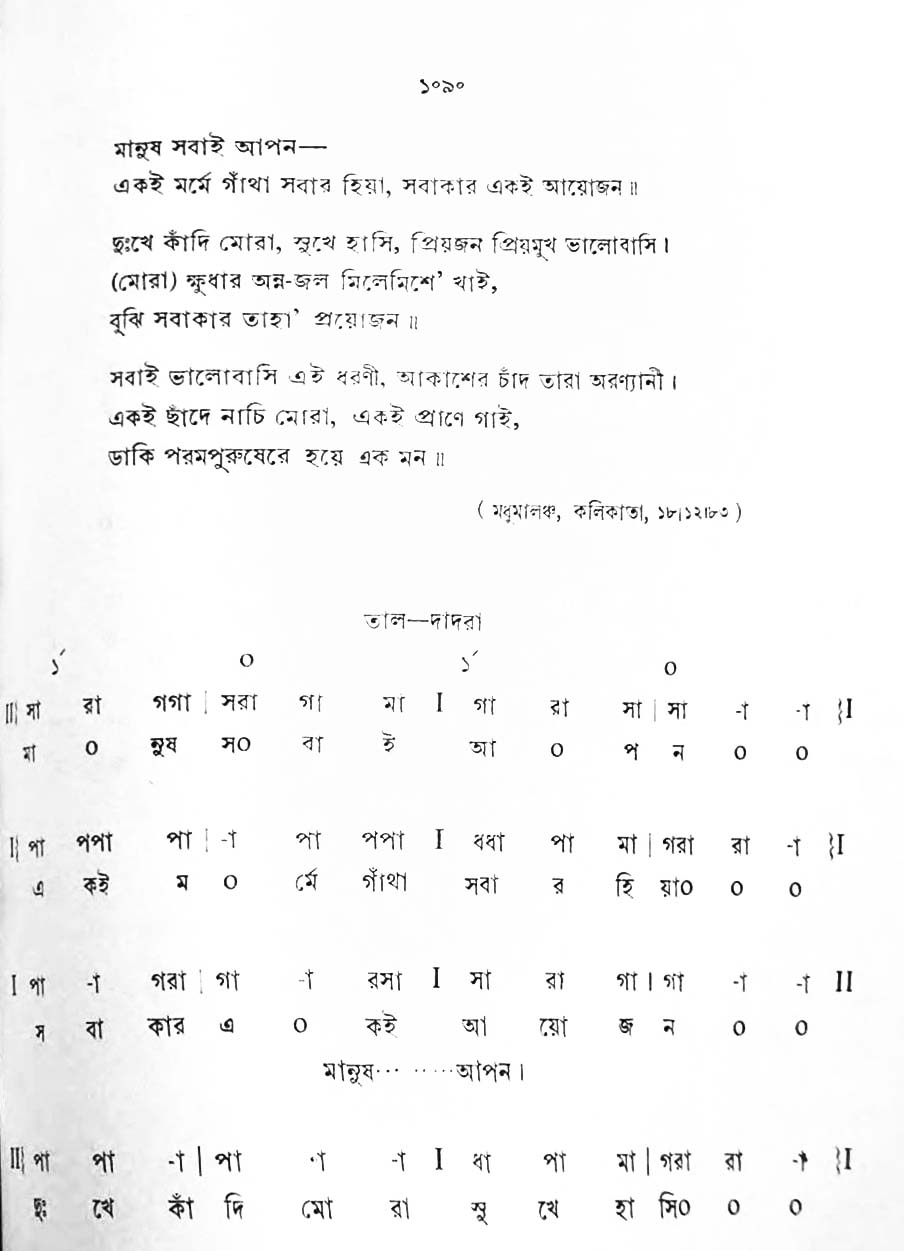 ১০৯০
মানুষ সবাই আপন—
একই মর্মে গাঁথা সবার হিয়া, সবাকার একই আয়োজন॥
দুঃখে কাঁদি মোরা, সুখে হাসি, প্রিয়জন প্রিয়মুখ ভালোবাসি।
(মোরা) ক্ষুধার অন্ন-জল মিলেমিশে' খাই,
বুঝি সবাকার তাহা' প্রয়োজন॥
সবাই ভালোবাসি এই ধরণী, আকাশের চাঁদ তারা অরণ্যানী।
একই ছাঁদে নাচি মোরা, একই প্রাণে গাই,
ডাকি পরমপুরুষেরে হয়ে এক মন॥
( মধুমালঞ্চ, কলিকাতা, ১৮।১২।৮৩ )
তাল—দাদরা
১´ ০ ১´ ০
II{ সা রা গগা | সরা গা মা I গা রা সা | সা -া -া }I
মা ০ নুষ স০ বা ই আ ০ প ন ০ ০
I{ পা পপা পা | -া পা পপা I ধধা পা মা | গরা রা -া }I
এ কই ম ০ র্মে গাঁথা সবা র হি য়া০ ০ ০
I পা -া গরা | গা -া রসা I সা রা গা | গা -া -া II
স বা কার এ ০ কই আ য়ো জ ন ০ ০
মানুষ··· ·····আপন।
II{ পা পা -া | পা -া -া I ধা পা মা | গরা রা -া }I
দুঃ খে কাঁ দি মো রা সু খে হা সি০ ০ ০